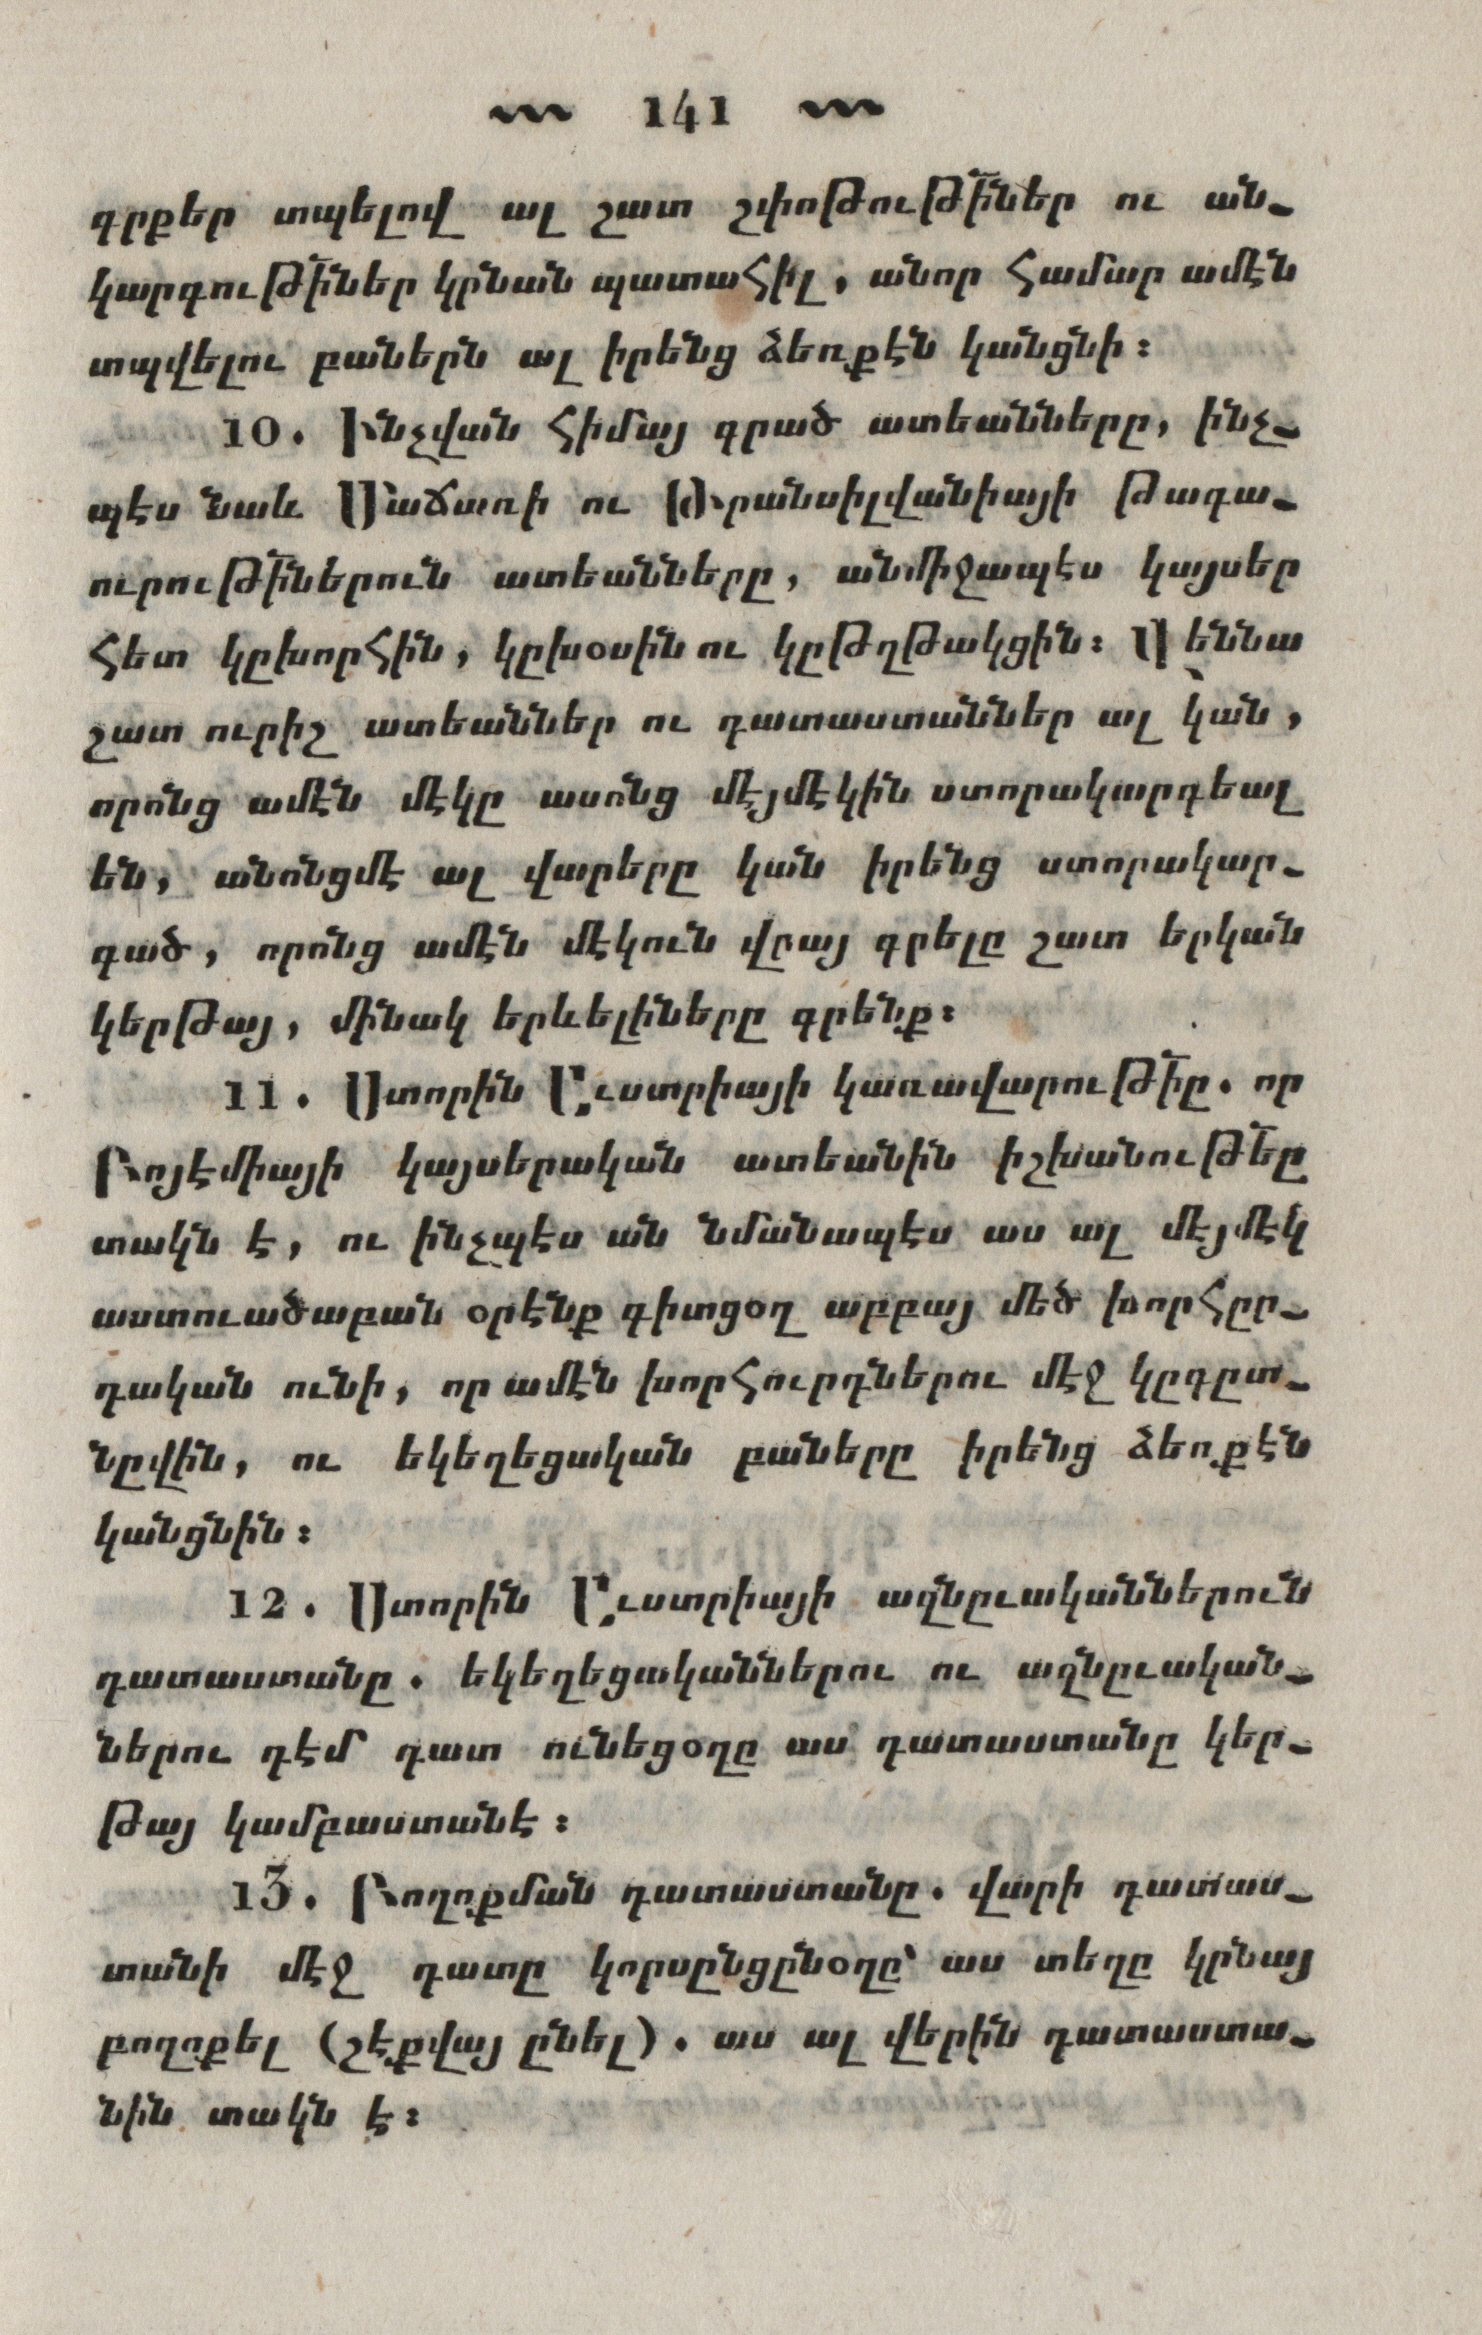 141
գրքեր տպելով ալ շատ շփոթութիներ ու ան֊
կարգութիներ կրնան պատահիլ, անոր համար ամէն
տպվելու բաներն ալ իրենց ձեռքէն կանցնի։
10. Ինչվան հիմայ գրած ատեանները, ինչ֊
պէս նաև Մաճառի ու Թրանսիլվանիայի թագա֊
ւորութիներուն ատեանները, անմիջապէս կայսեր
հետ կըխորհին, կըխօսին ու կըթղթակցին։ Վեննա
շատ ուրիշ ատեաններ ու դատաստաններ ալ կան,
որոնց ամէն մէկը ասոնց մէյմէկին ստորակարգեալ
են, անոնցմէ ալ վարերը կան իրենց ստորակար֊
գած, որոնց ամէն մէկուն վրայ գրելը շատ երկան
կերթայ, մինակ երևելիները գրենք։
11. Ստորին Ըւստրիայի կառավարութիը. որ
Բոյէմիայի կայսերական ատեանին իշխանութեը
տակն է, ու ինչպէս ան նմանապէս աս ալ մէյմէկ
աստուածաբան օրէնք գիտցօղ աբբայ մեծ խորհըր֊
դական ունի, որ ամէն խորհուրդներու մէջ կըգըտ֊
նըվին, ու եկեղեցական բաները իրենց ձեռքէն
կանցնին։
12. Ստորին Ըւստրիայի ազնըւականներուն
դատաստանը. եկեղեցականներու ու ազնըւական֊
ներու դէմ դատ ունեցօղը աս դատաստանը կեր֊
թայ կամբաստանէ։
13. Բողոքման դատաստանը. վարի դատաս֊
տանի մէջ դատը կորսընցընօղը՝ աս տեղը կրնայ
բողոքել (շէքվայ ընել). աս ալ վերին դատաստա֊
նին տակն է։